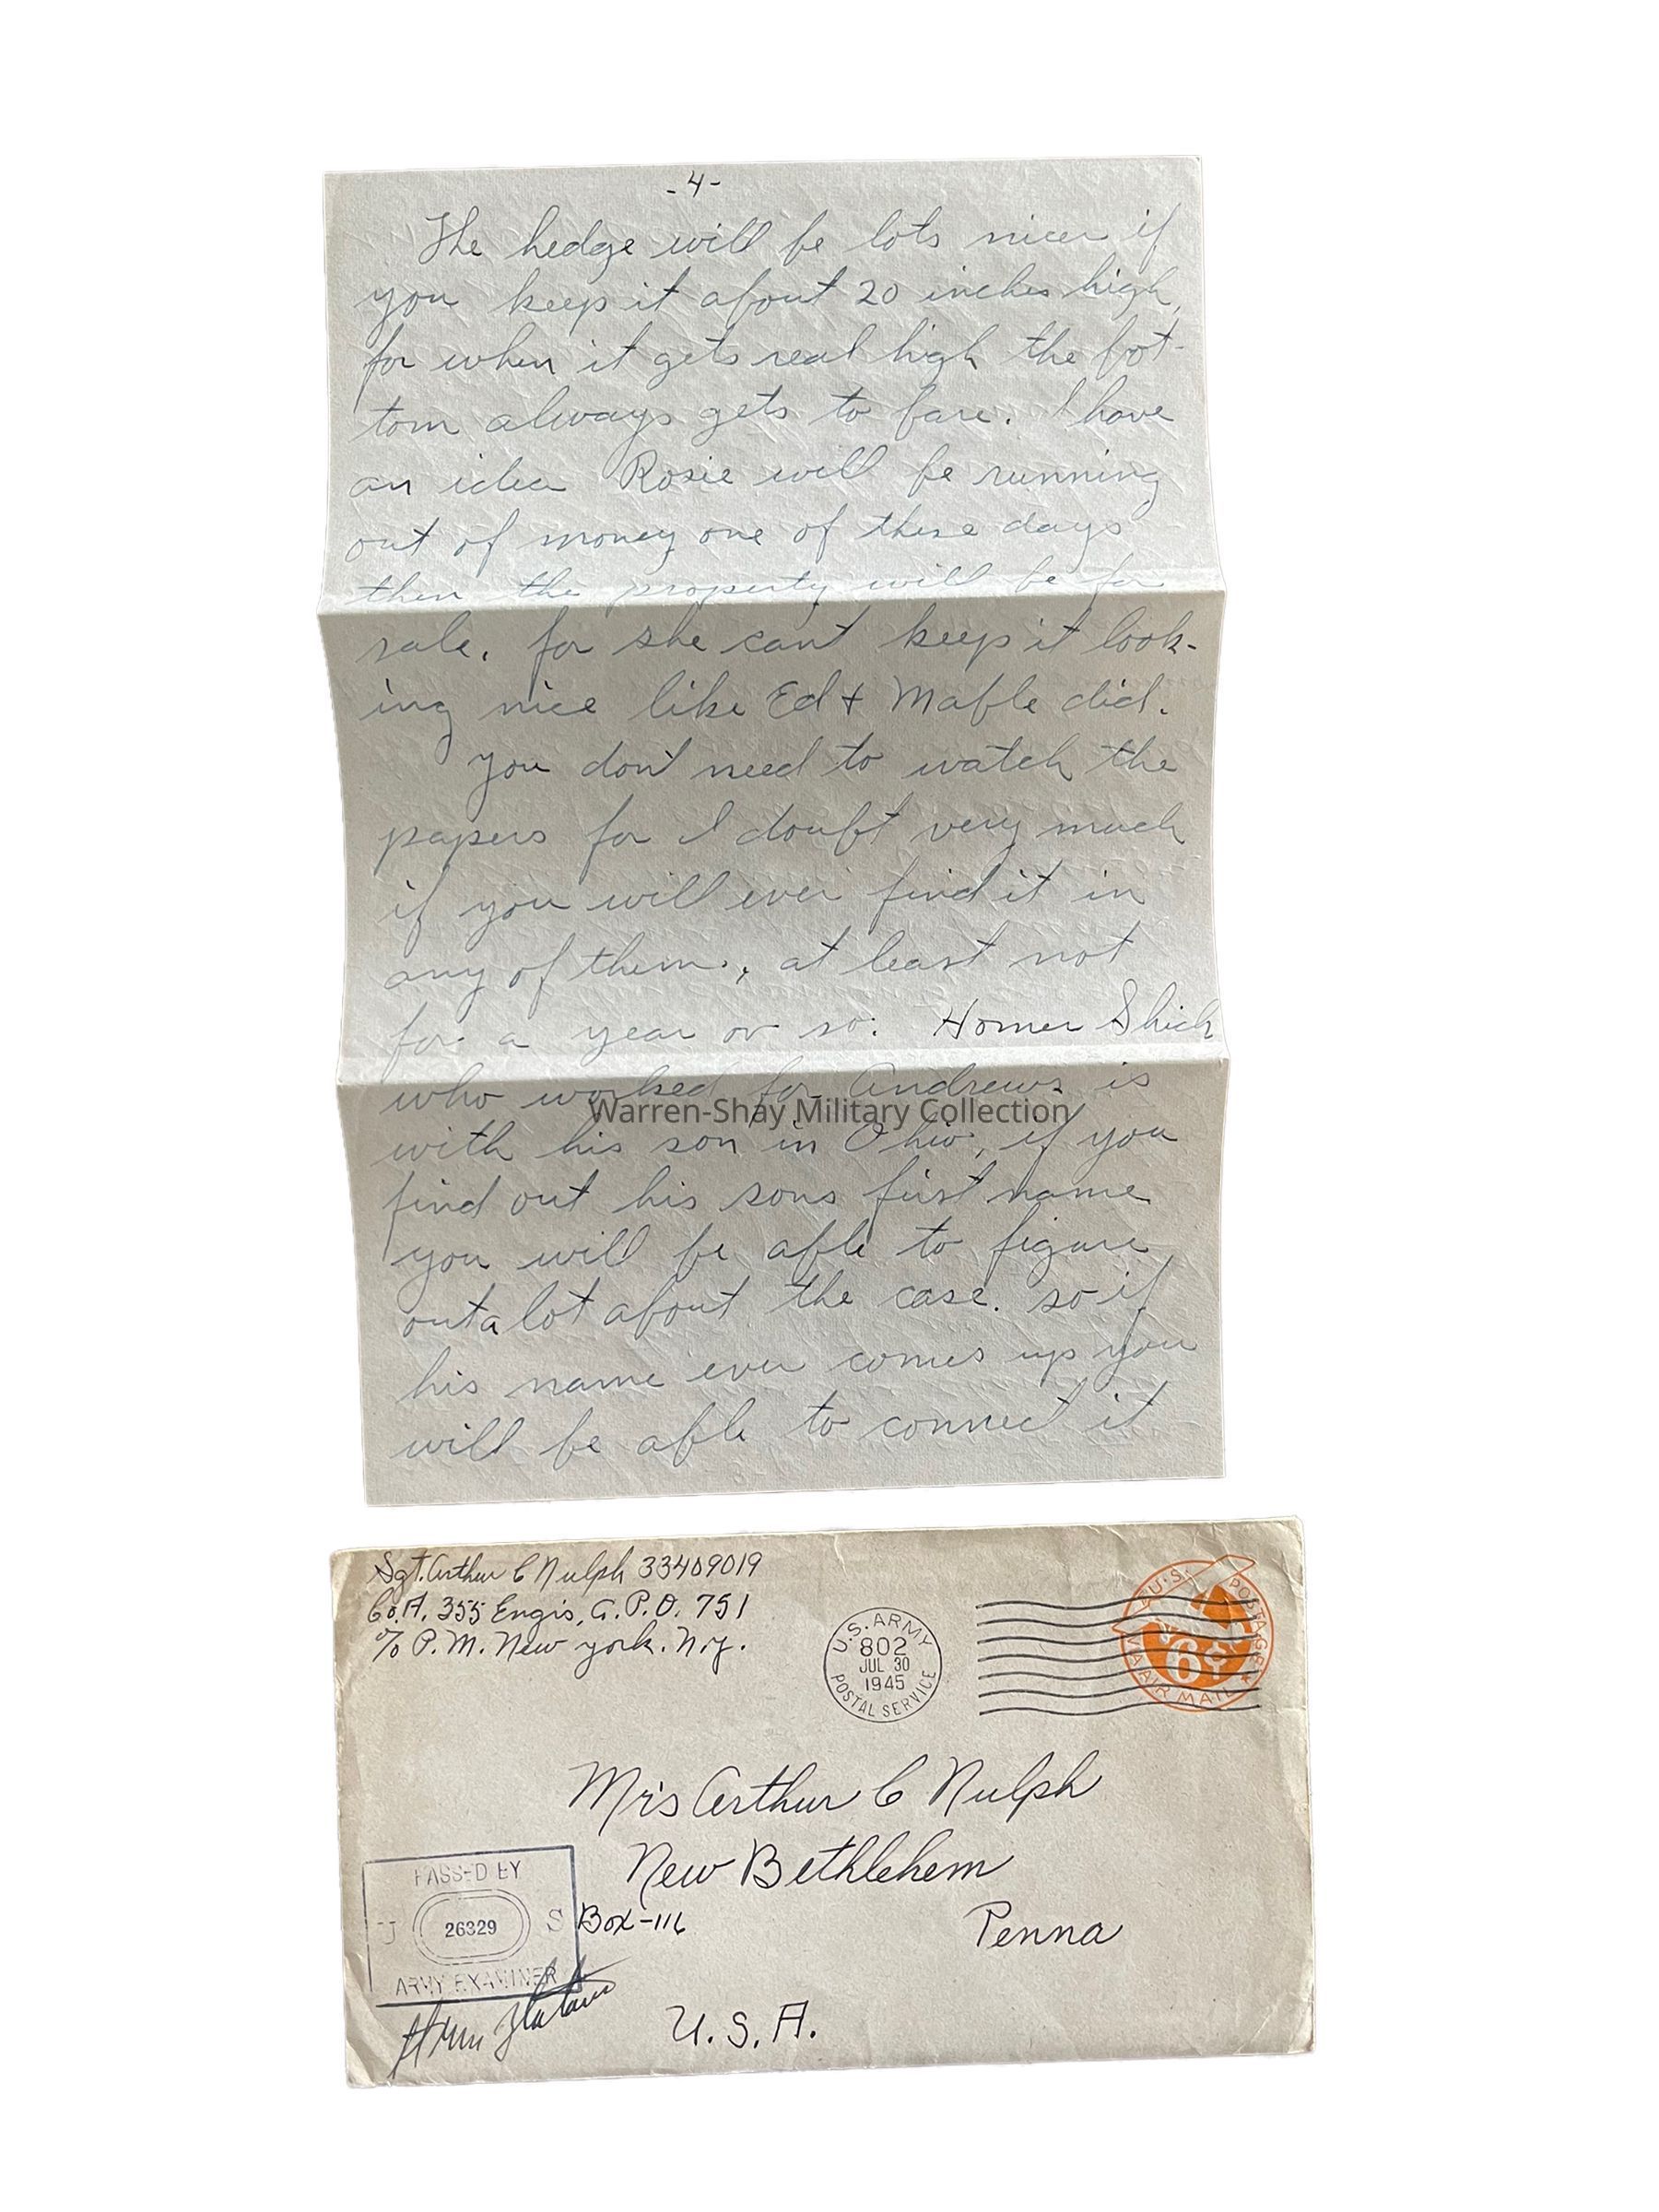 -4-
The hedge will be lots nicer if
you keep it about 20 inches high,
for when it gets real high the bot-
tom always gets to bare. I have
an idea Rosie will be running
out of money one of these days
then the property will be for
sale. for she cant keep it look-
ing nice like Ed & Mable did.
you don't need to watch the
papers for I doubt very much
if you will ever find it in
any of them., at least not
for a year or so. Homer Shick
who worked for Andrews is
Warren-Shay Military Collection
with his son in Ohio, if you
find out his sons first name
you will be able to figure
out a lot about the case. so if
his name ever comes up you
will be able to connect it
Sgt. Arthur C Nulph 33409019
Co. A. 355 Engrs, A.P.O. 751
c/o P.M. New york. N.y.
U.S. ARMY
802
JUL 30
1945
POSTAL SERVICE
U.S. POSTAGE
6¢
VIA AIR MAIL
Mrs Arthur C Nulph
New Bethlehem
Box-116
Penna
U.S.A.
PASSED BY
U 26329 S
ARMY EXAMINER